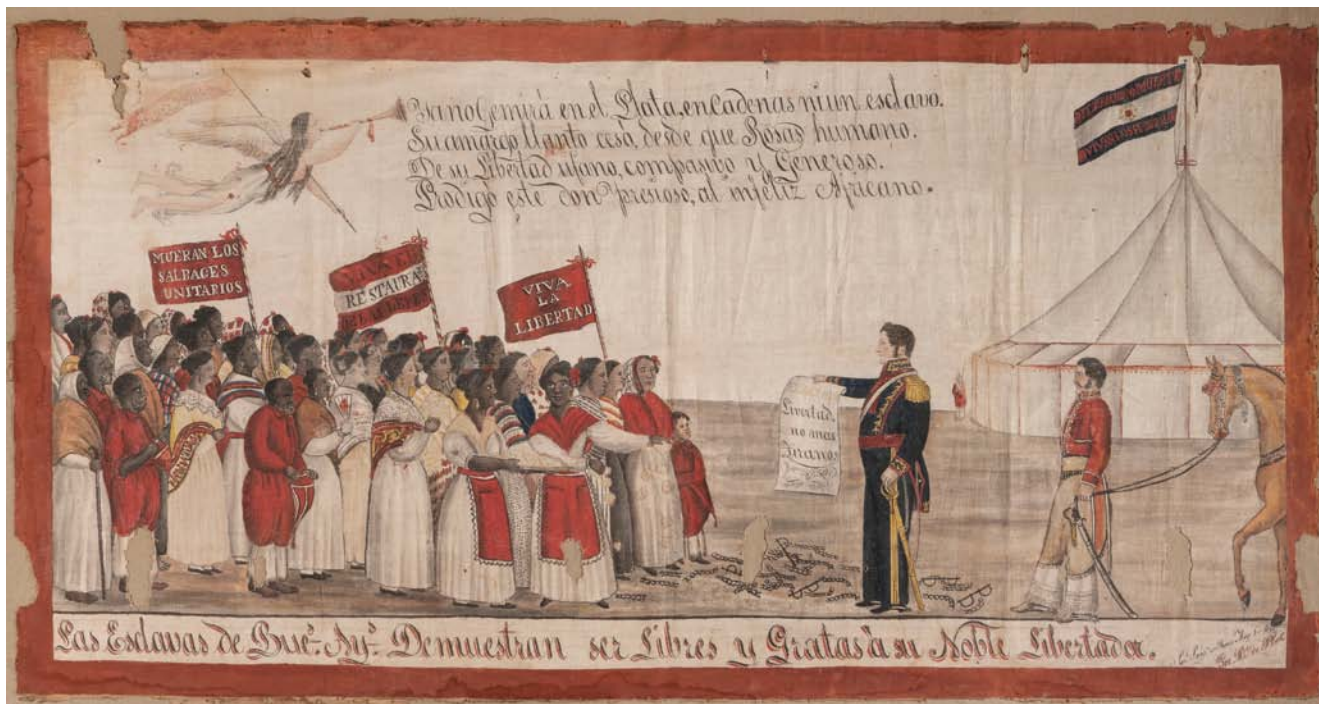 Ya no Gemirá en el Plata, en Cadenas ni un esclavo.
Su amargo llanto cesó, desde que Rosas humano.
De su Libertad ufano, compasivo y Generoso.
Prodigó este don presioso, al infeliz Africano.
O MUERTE
VIVAN LOS
MUERAN LOS
SALBAGES
UNITARIOS
VIVA EL
RESTAURA
VIVA
LA
LIBERTAD
Livertad.
no mas
Tiranos
Las Esclavas de Bueˢ. Ayˢ. Demuestran ser Libres y Gratas à su Noble Libertador.